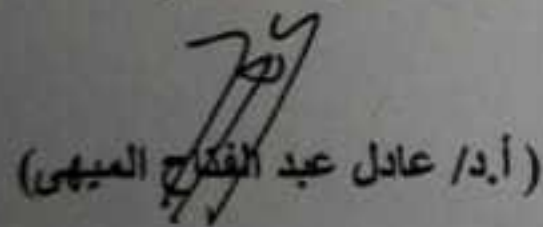 ( أ.د/ عادل عبد الفتاح الميهى)